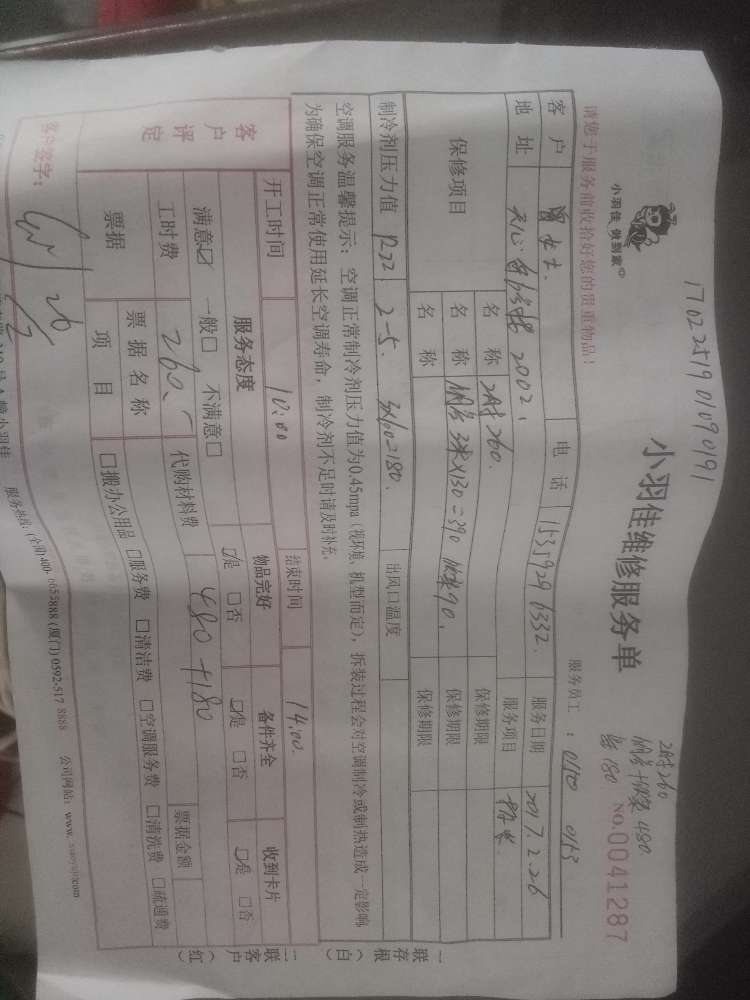 17022519 01090191
小羽佳 做到家
小羽佳维修服务单
260
480
180
NO.0041287
请您于服务前收拾好您的贵重物品！
服务员工：0100 0163
客户 曾女士 电话 15359296332 服务日期 2017.2.26
地址 2002 服务项目 拆装
保修项目 名称 260 保修期限
名称 钢管3米×130=390 支架90 保修期限
名称 保修期限
制冷剂压力值 R22 2-5 3×60=180 出风口温度
空调服务温馨提示：空调正常制冷剂压力值为0.45mpa（视环境、机型而定），拆装过程会对空调制冷或制热造成一定影响
为确保空调正常使用延长空调寿命，制冷剂不足时请及时补充。
开工时间 10:00 结束时间 14:00
客户评定 服务态度 物品完好 备件齐全 收到卡片
满意☑ 一般□ 不满意□ ☑是 □否 ☑是 □否 ☑是 □否
工时费 260 代购材料费 480+180 票据金额
票据 票据名称
项目 □搬办公用品 □服务费 □清洁费 □空调服务费 □清洗费 □疏通费
客户签字：
服务热线：(全国)400-6655888 (厦门) 0592-517 8888 公司网站：www.xiaoyujia.com
一联存根（白）
二联客户（红）